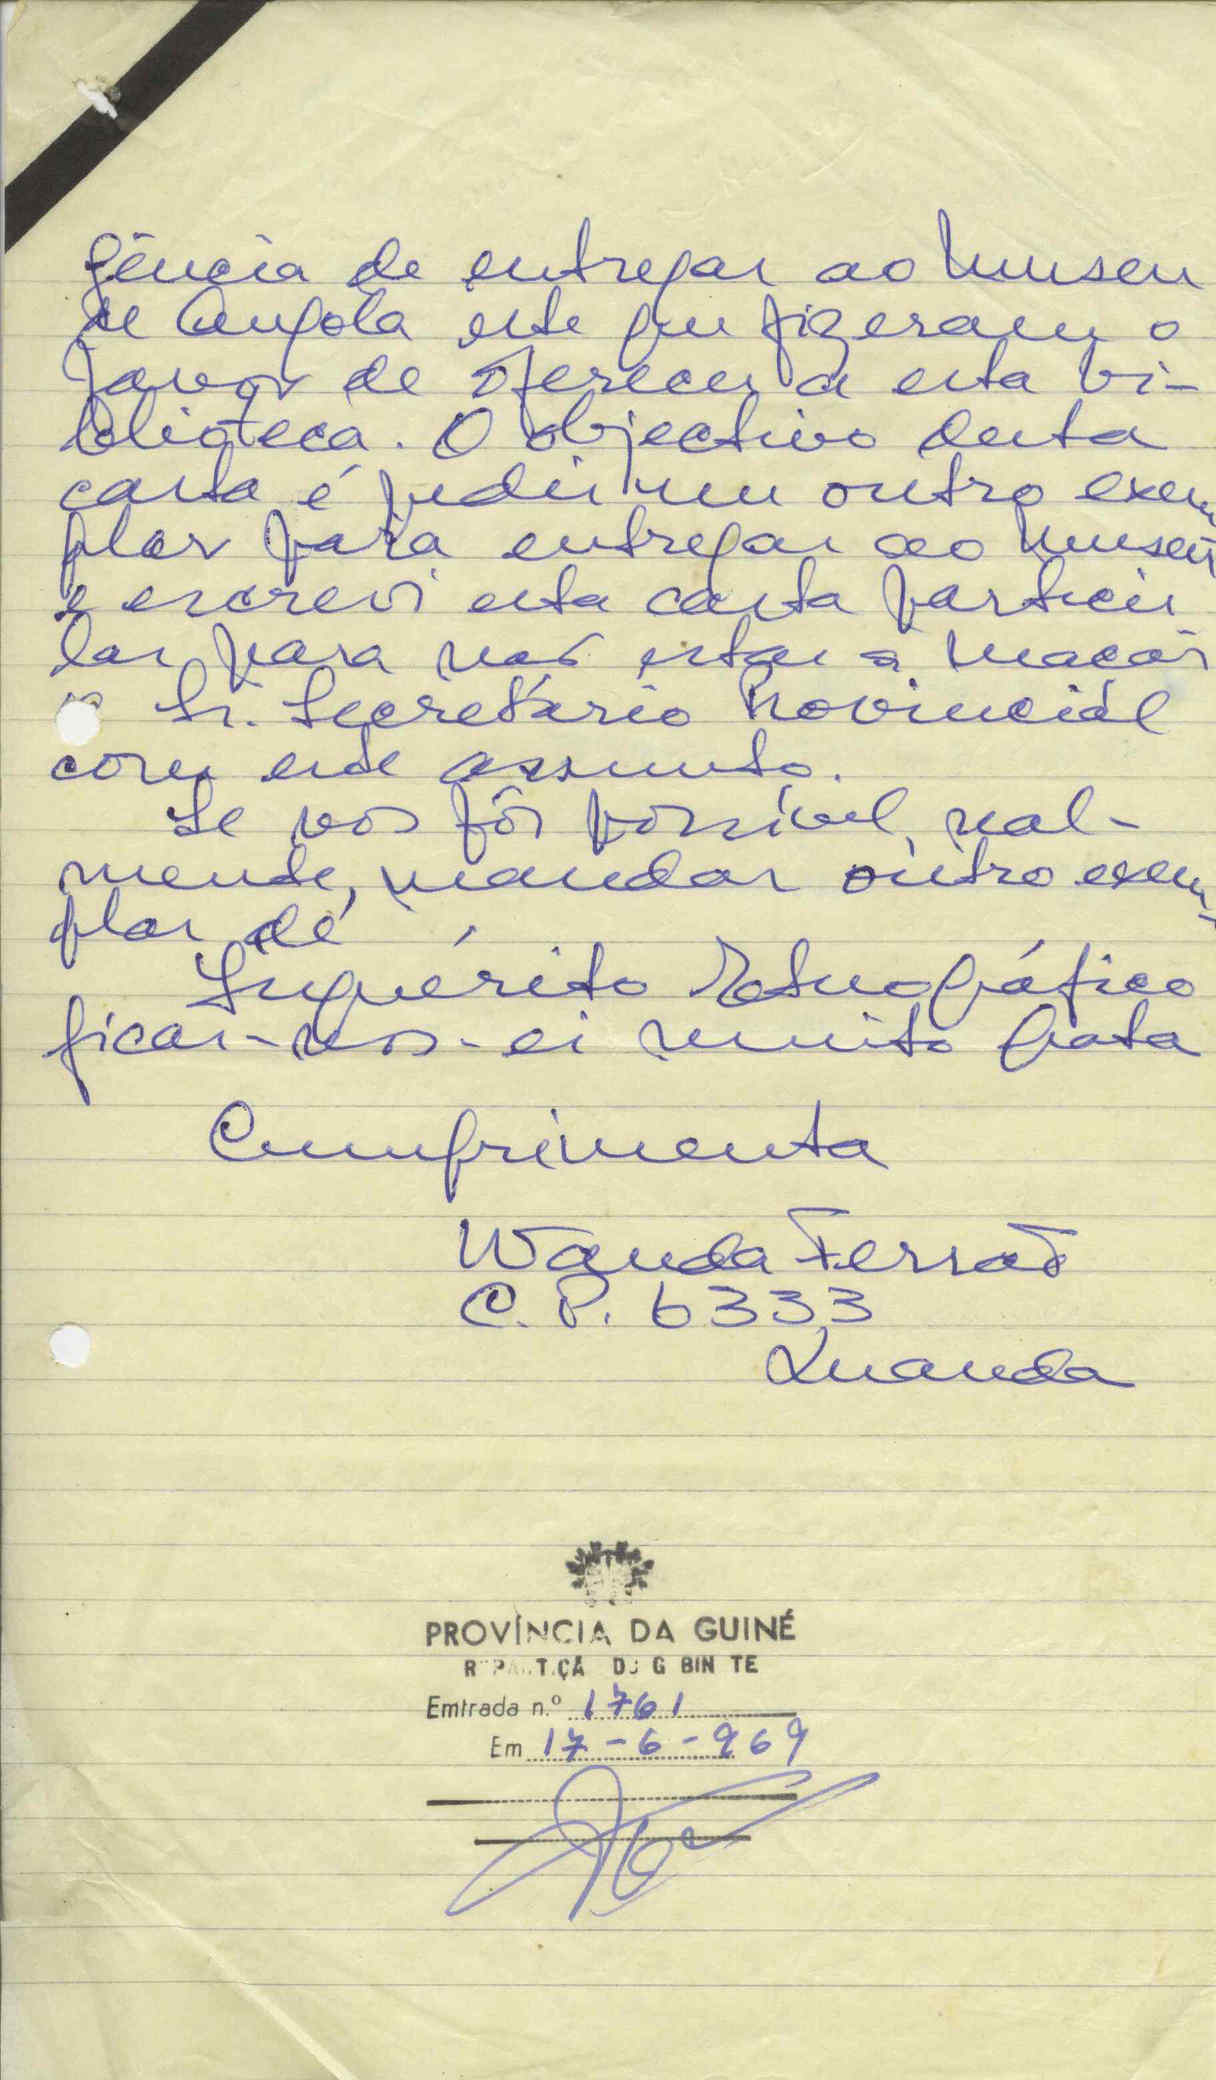 gência de entregar ao Museu
de Angola este que fizeram o
favor de oferecer a esta bi-
blioteca. O objectivo desta
carta é pedir um outro exem
plar para entregar ao Museu
e escrevi esta carta particu
lar para não estar a maçar
o Sr. Secretário Provincial
com este assunto.
Se vos fôr possível, real-
mente, mandar outro exem-
plar de
Inquérito Etnográfico
ficar-vos-ei muito grata
Cumprimenta
Wanda Ferrão
C. P. 6333
Luanda
PROVÍNCIA DA GUINÉ
Emtrada n.º 1761
Em 17-6-969